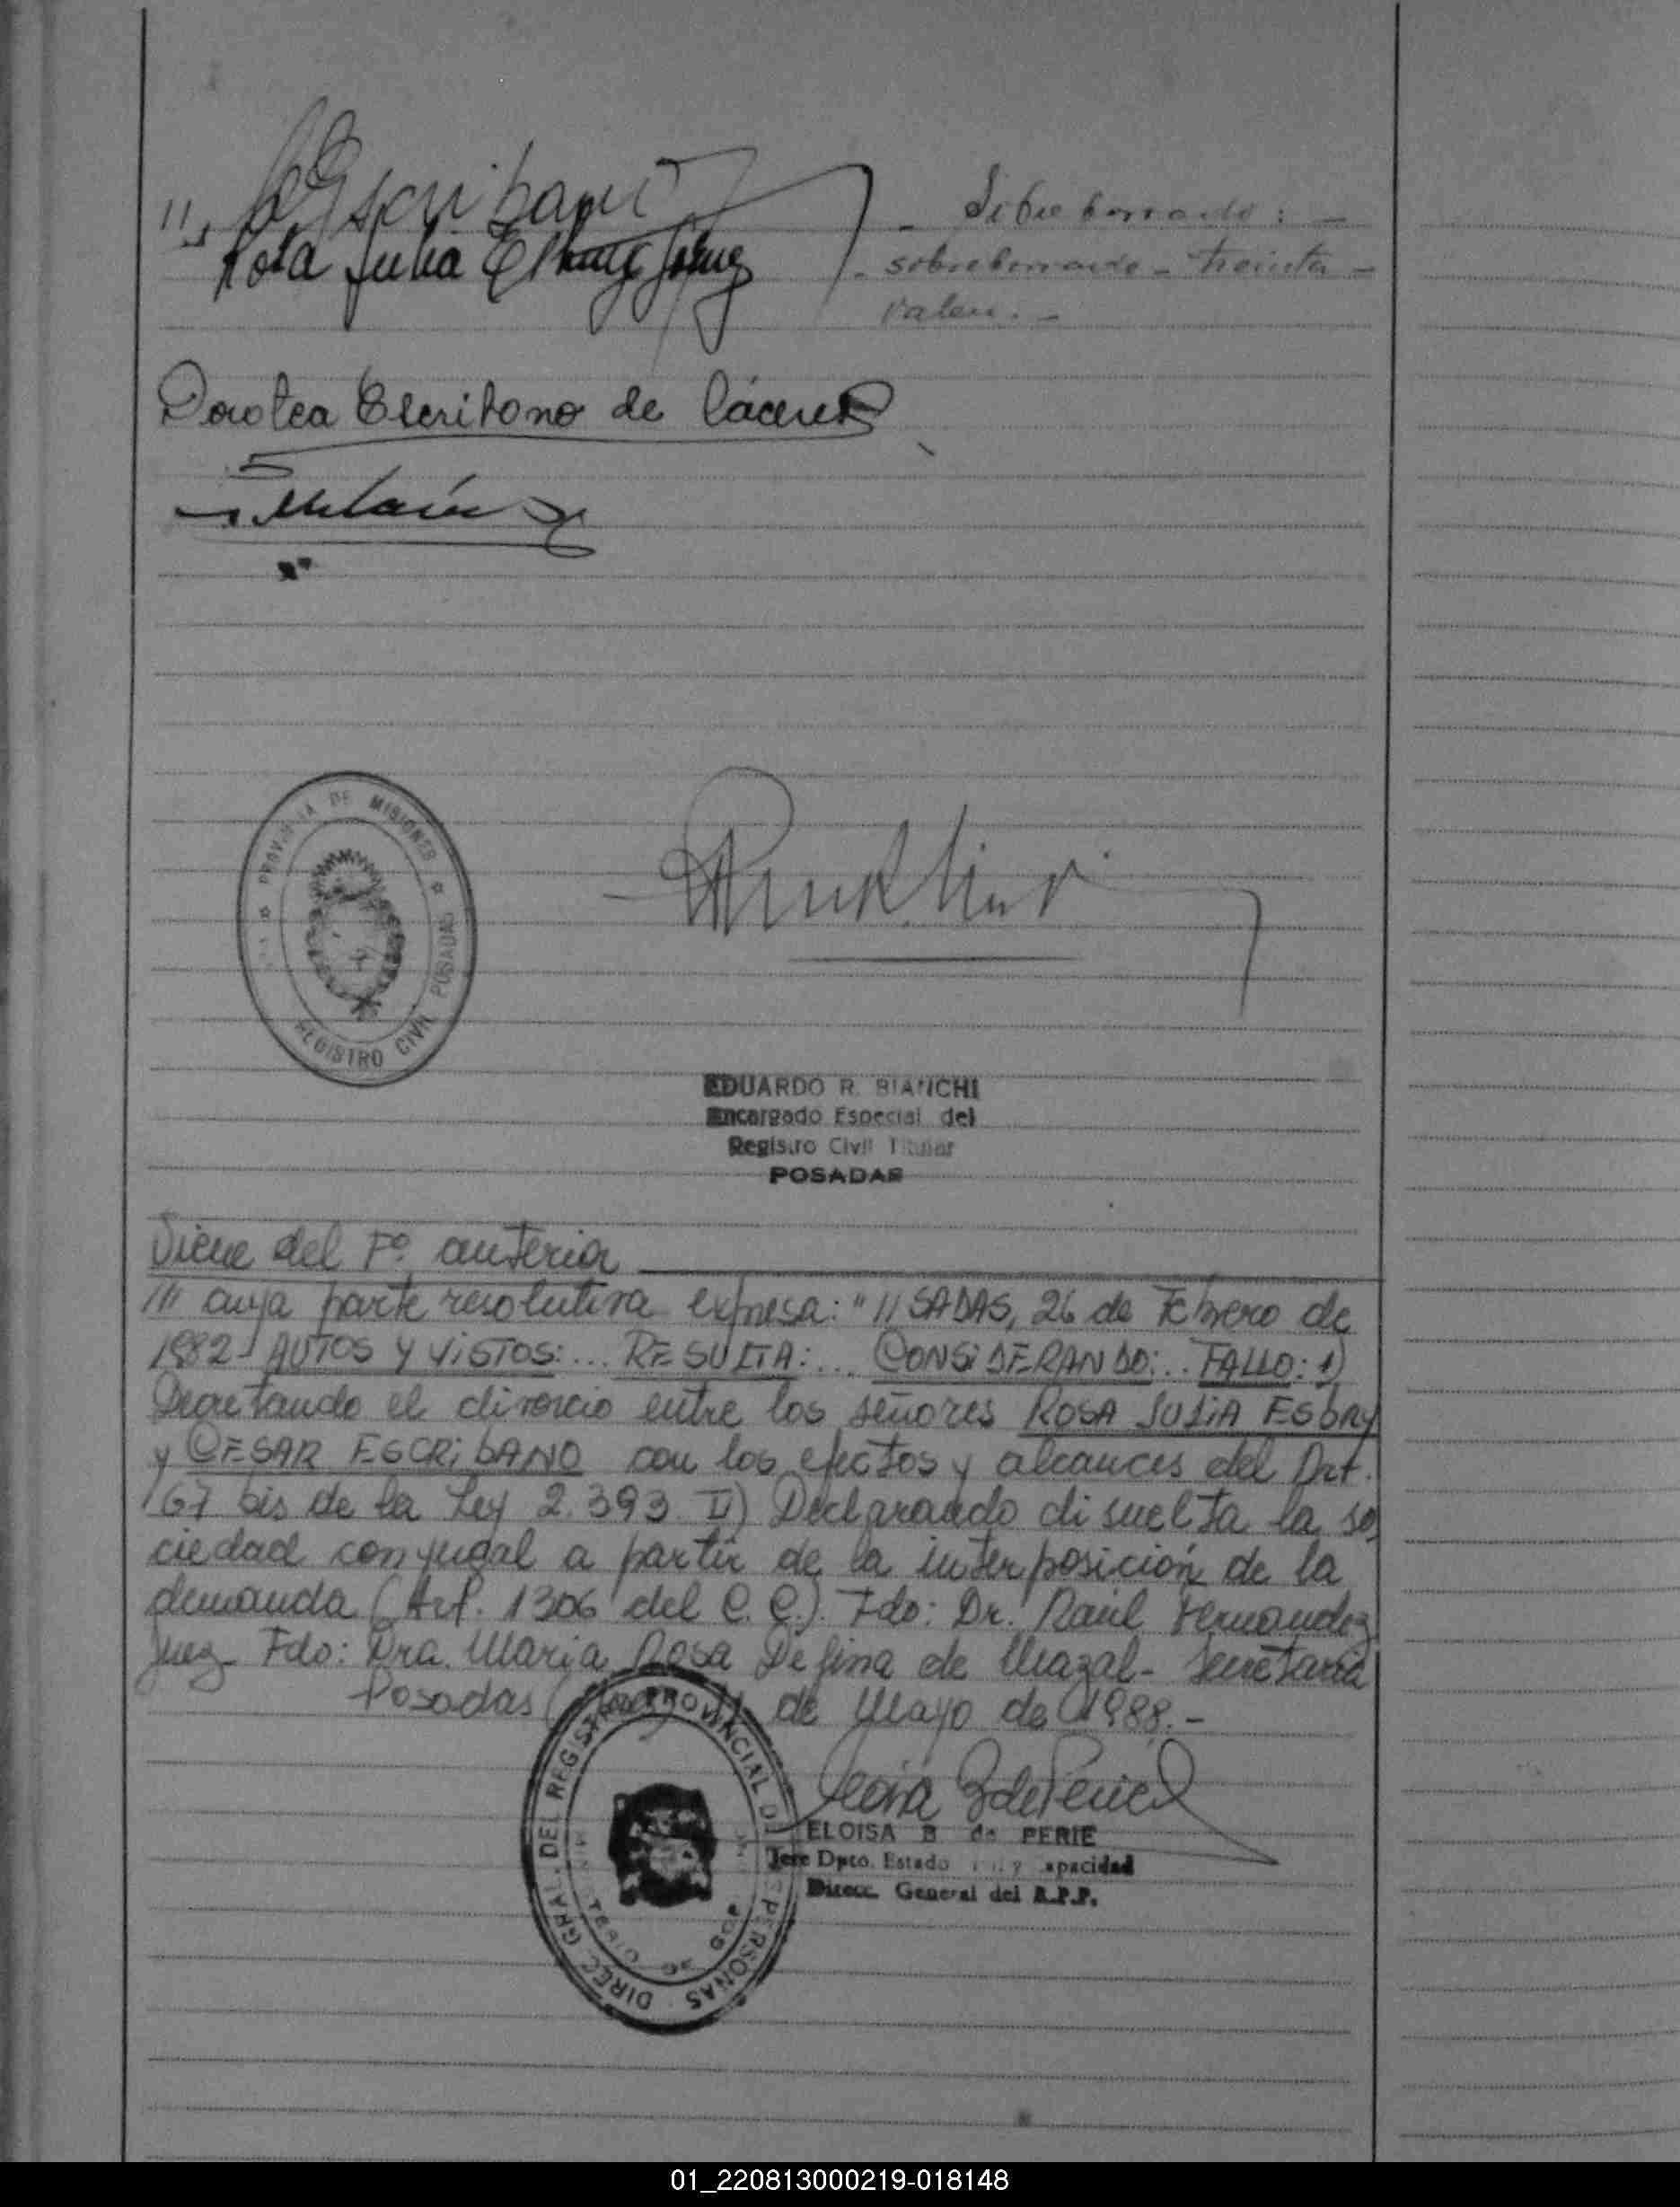 Escribano
Rosa Julia
Sobre borrado: –
sobreborrado – treinta –
valen. –
Dorotea Escribano de Cáceres
PROVINCIA DE MISIONES
REGISTRO CIVIL POSADAS
EDUARDO R. BIANCHI
Encargado Especial del
Registro Civil Titular
POSADAS
Viene del Fº anterior
/// cuya parte resolutiva expresa: "//SADAS, 26 de Febrero de
1982 AUTOS Y VISTOS:... RESULTA:... CONSIDERANDO:.. FALLO: 1)
Decretando el divorcio entre los señores ROSA JULIA
y CESAR ESCRIBANO con los efectos y alcances del Art.
67 bis de la Ley 2.393 II) Declarando disuelta la so
ciedad conyugal a partir de la interposición de la
demanda (Art. 1306 del C.C.). Fdo: Dr. Raúl Fernandez
Juez Fdo: Dra. Maria Rosa Defina de – Secretaria
Posadas ( de Mayo de 1988.–
DIREC. GRAL. DEL REGISTRO PROVINCIAL DE LAS PERSONAS
MINISTERIO DE GOB
ELOISA B de PERIE
Jefe Dpto. Estado y apacidad
Direcc. General del R.P.P.
01_220813000219-018148